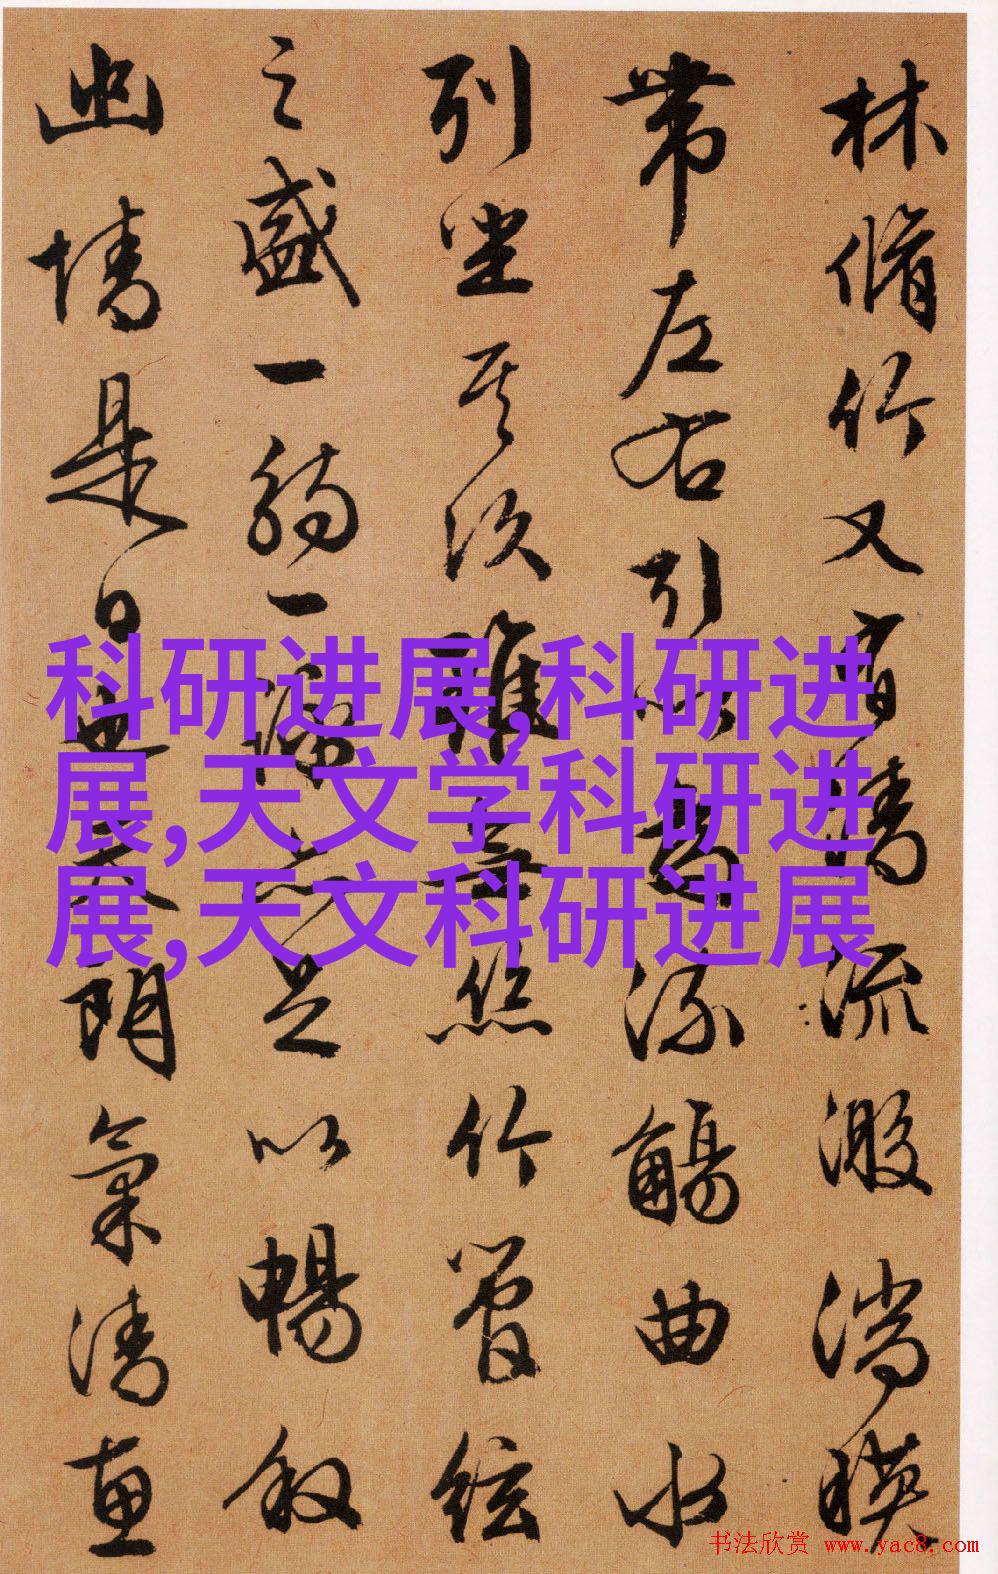 林脩竹又有清流激湍暎
帶左右引以為流觴曲水
列坐其次雖無絲竹管絃
之盛一觴一詠亦足以暢叙
幽情是日也天朗氣清惠
科研进展,科研进
展,天文学科研进
展,天文科研进展
书法欣赏 www.yac8.com